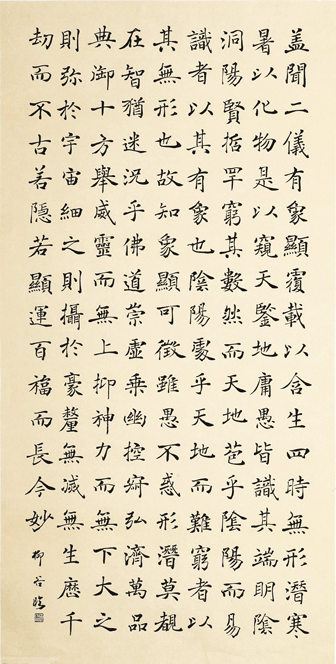 蓋聞二儀有象顯覆載以含生四時無形潛寒
暑以化物是以窺天鑒地庸愚皆識其端明陰
洞陽賢哲罕窮其數然而天地苞乎陰陽而易
識者以其有象也陰陽處乎天地而難窮者以
其無形也故知象顯可徵雖愚不惑形潛莫覩
在智猶迷況乎佛道崇虛乘幽控寂弘濟萬品
典御十方舉威靈而無上抑神力而無下大之
則弥於宇宙細之則攝於豪釐無滅無生歷千
劫而不古若隱若顯運百福而長今妙